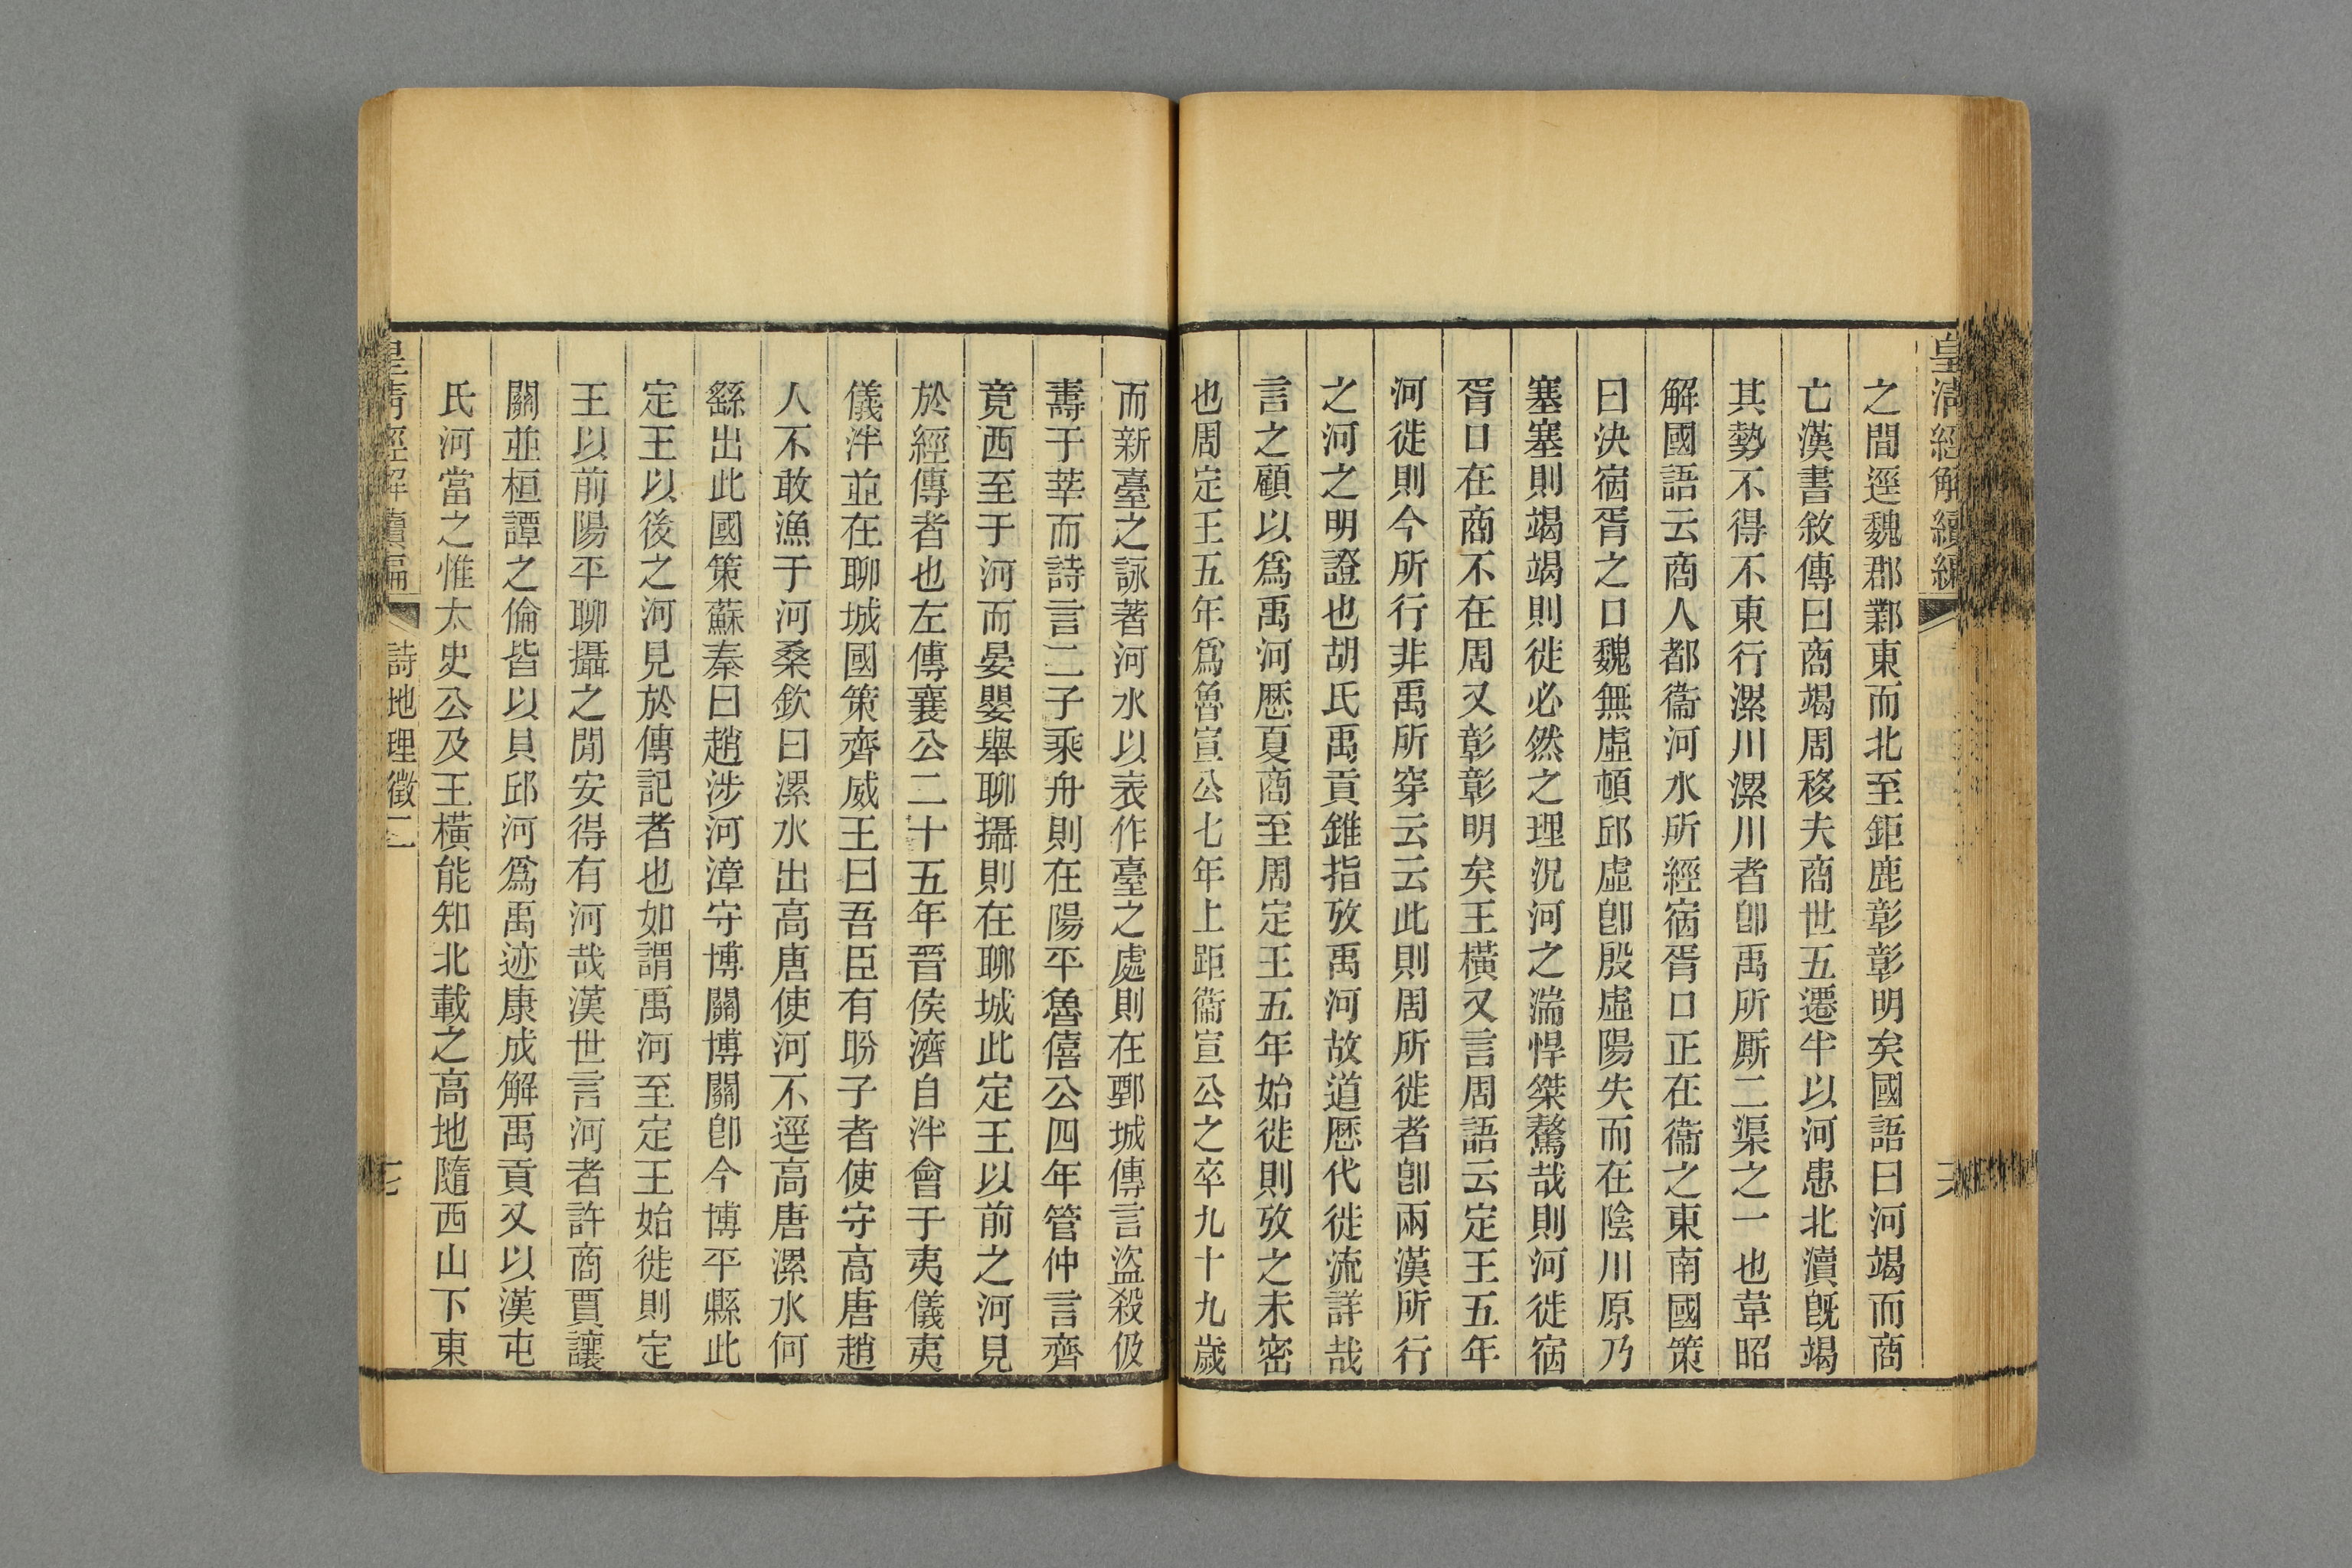 皇清經解續編
之間逕魏郡鄴東而北至鉅鹿彰彰明矣國語曰河竭而商
亡漢書敘傳曰商竭周移夫商世五遷半以河患北瀆旣竭
其勢不得不東行漯川漯川者卽禹所厮二渠之一也韋昭
解國語云商人都衞河水所經宿胥口正在衞之東南國策
曰決宿胥之口魏無虛頓邱虛卽殷虛陽失而在陰川原乃
塞塞則竭竭則徙必然之理況河之湍悍桀驁哉則河徙宿
胥口在商不在周又彰彰明矣王橫又言周語云定王五年
河徙則今所行非禹所穿云云此則周所徙者卽兩漢所行
之河之明證也胡氏禹貢錐指攷禹河故道歷代徙流詳哉
言之顧以爲禹河歷夏商至周定王五年始徙則攷之未密
也周定王五年爲魯宣公七年上距衞宣公之卒九十九歲
而新臺之詠著河水以表作臺之處則在鄄城傳言盜殺伋
壽于莘而詩言二子乘舟則在陽平魯僖公四年管仲言齊
竟西至于河而晏嬰舉聊攝則在聊城此定王以前之河見
於經傳者也左傳襄公二十五年晉侯濟自泮會于夷儀夷
儀泮並在聊城國策齊威王曰吾臣有盼子者使守高唐趙
人不敢漁于河桑欽曰漯水出高唐使河不逕高唐漯水何
繇出此國策蘇秦曰趙涉河漳守博關博關卽今博平縣此
定王以後之河見於傳記者也如謂禹河至定王始徙則定
王以前陽平聊攝之閒安得有河哉漢世言河者許商賈讓
關並桓譚之倫皆以貝邱河爲禹迹康成解禹貢又以漢屯
氏河當之惟太史公及王橫能知北載之高地隨西山下東
皇清經解續編
詩地理徵二